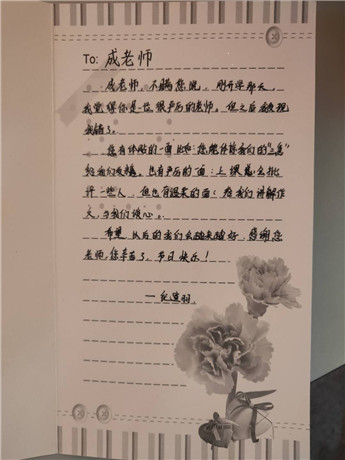 To: 成老师
成老师，不瞒您说，刚开学那天，
我觉得你是一位很严厉的老师，但之后我发现
我错了。
您有体贴的一面：比如：您能体谅我们的
给我们发糖。也有严厉的一面：上课着急批
评一些人，但也有温柔的面：为我们讲解作
文，与我们谈心。
希望以后的我们会越来越好，感谢您
老师，您辛苦了，节日快乐！